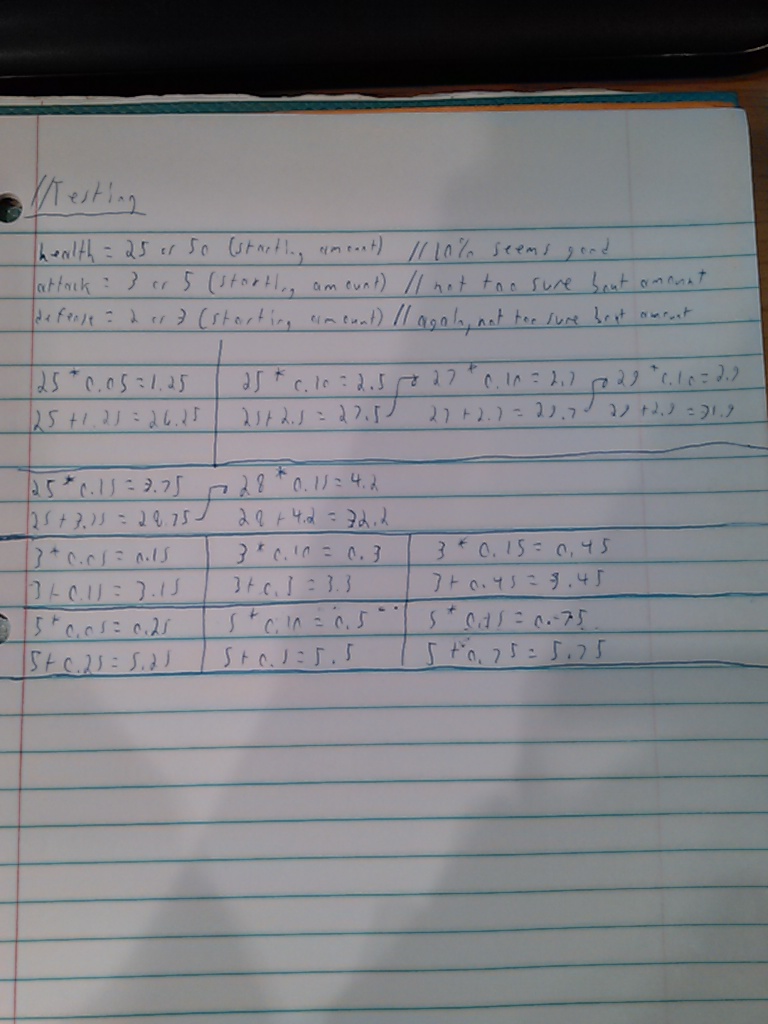 //Testing
health = 25 or 50 (starting amount) //10% seems good
attack = 3 or 5 (starting amount) // not too sure bout amount
defense = 2 or 3 (starting amount) // again, not too sure bout amount
25 * 0.05 = 1.25 25 * 0.10 = 2.5 27 * 0.10 = 2.7 29 * 0.10 = 2.9
25 + 1.25 = 26.25 25 + 2.5 = 27.5 27 + 2.7 = 29.7 29 + 2.9 = 31.9
25 * 0.15 = 3.75 28 * 0.15 = 4.2
25 + 3.75 = 28.75 28 + 4.2 = 32.2
3 * 0.05 = 0.15 3 * 0.10 = 0.3 3 * 0.15 = 0.45
3 + 0.15 = 3.15 3 + 0.3 = 3.3 3 + 0.45 = 3.45
5 * 0.05 = 0.25 5 * 0.10 = 0.5 5 * 0.15 = 0.75
5 + 0.25 = 5.25 5 + 0.5 = 5.5 5 + 0.75 = 5.75